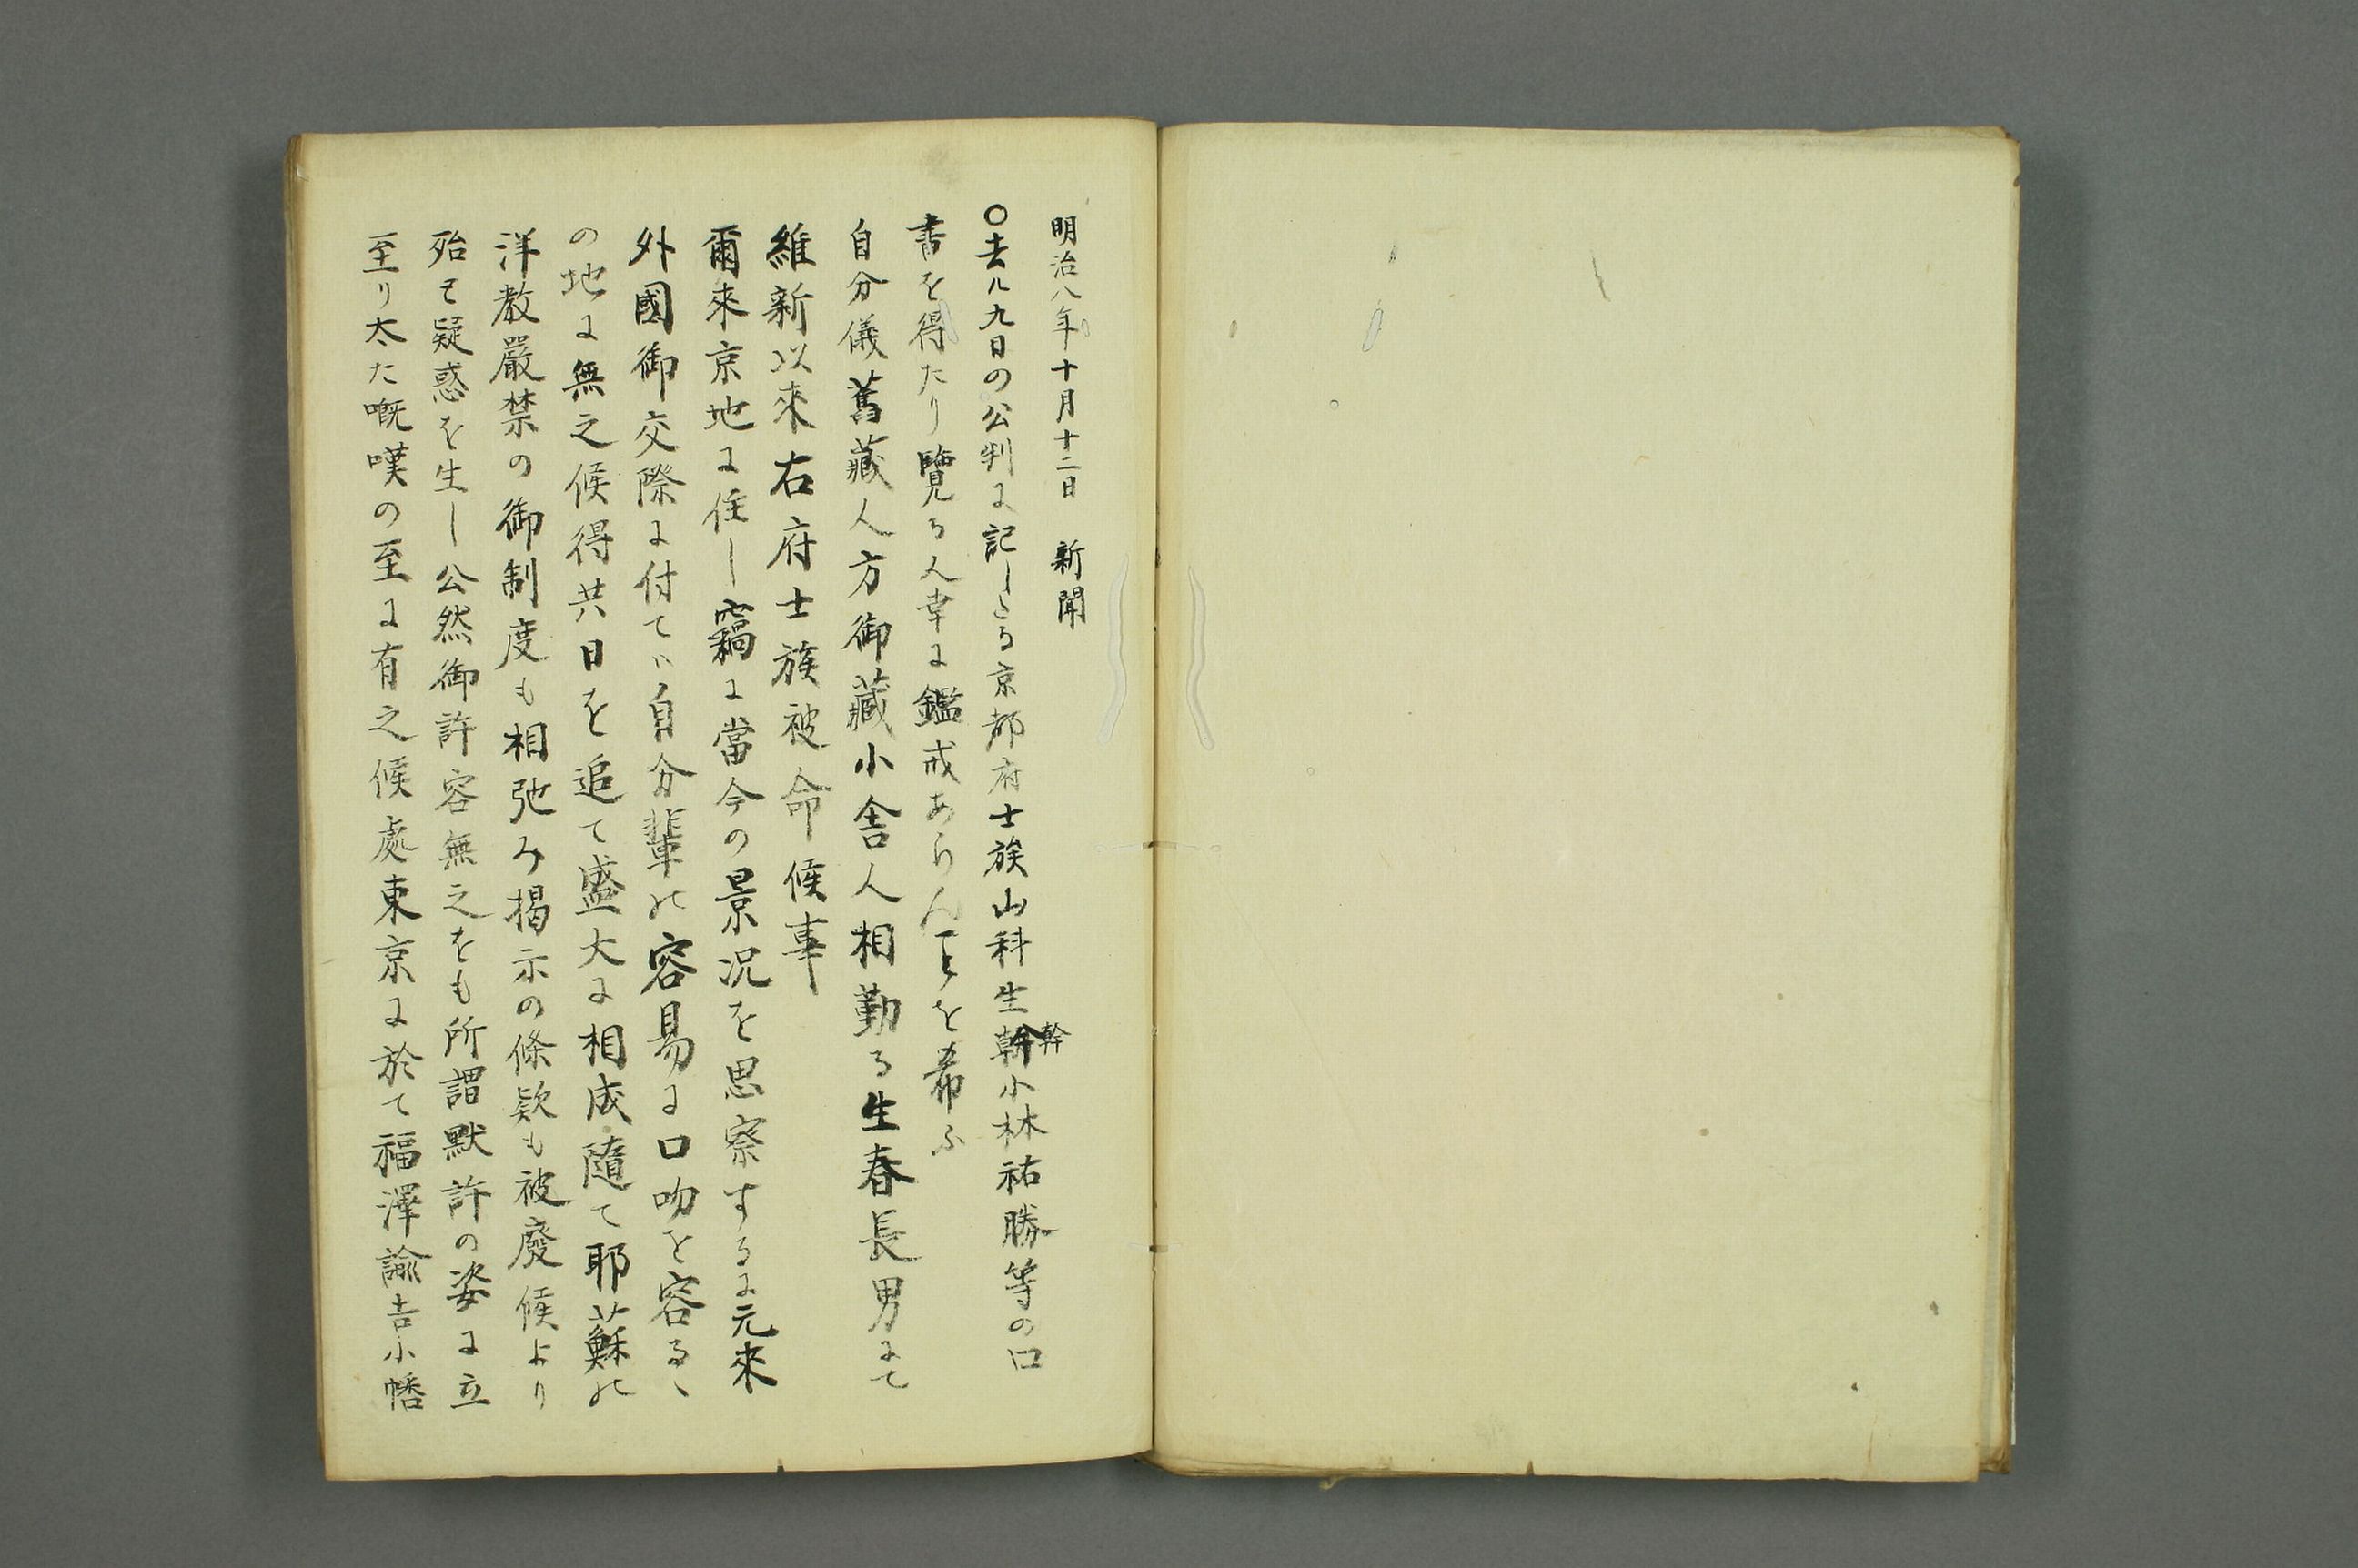 明治八年十月十二日　新聞
〇去ル九日の公判に記したる京都府士族山科生幹幹小林祐勝等の口
書を得たり覽る人幸に鑑戒あらんヿを希ふ
自分儀舊藏人方御藏小舎人相勤る生春長男にて
維新以来右府士族被命候事
爾來京地に住し竊に當今の景況を思察するに元來
外國御交際に付てハ自分輩の容易に口吻を容るゝ
の地に無之候得共日を追て盛大に相成隨て耶蘇の
洋教嚴禁の御制度も相弛み掲示の條欵も被廢候より
殆と疑惑を生し公然御許容無之をも所謂默許の姿に立
至り太た嘅嘆の至に有之候處東京に於て福澤諭吉小幡